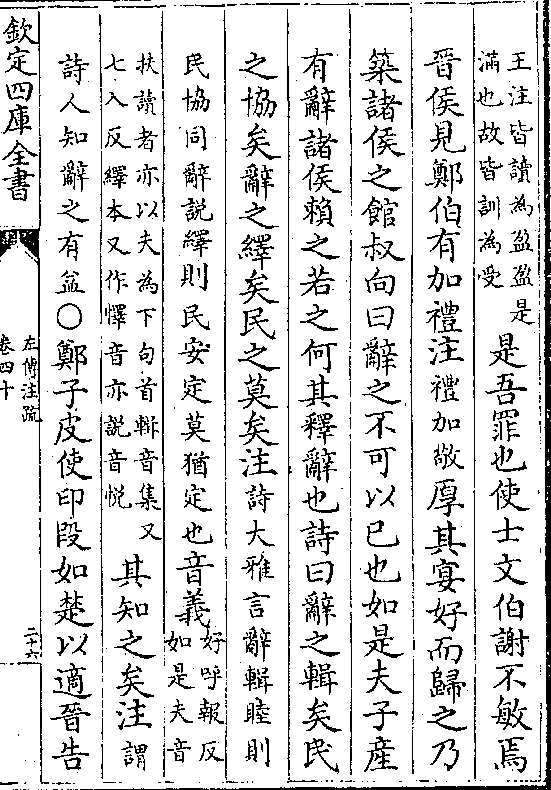 王注皆讀為盈盈是
滿也故皆訓為受
是吾罪也使士文伯謝不敏焉
晉侯見鄭伯有加禮注禮加敬厚其宴好而歸之乃
築諸侯之館叔向曰辭之不可以已也如是夫子產
有辭諸侯賴之若之何其釋辭也詩曰辭之輯矣民
之協矣辭之繹矣民之莫矣注詩大雅言辭輯睦則
民協同辭說繹則民安定莫猶定也音義
好呼報反
如是夫音
扶讀者亦以夫為下句首輯音集又
七入反繹本又作懌音亦說音悅
其知之矣注謂
詩人知辭之有益○鄭子皮使印段如楚以適晉告
欽定四庫全書
左傳注疏
卷四十
二十六